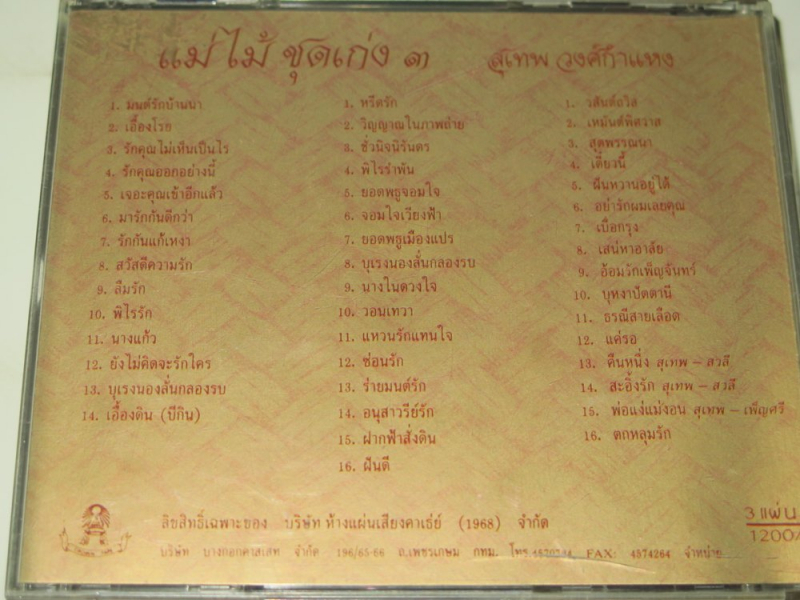 แม่ไม้ ชุดเก่ง ๓ สุเทพ วงศ์กำแหง
1. มนต์รักบ้านนา
2. เอื้องโรย
3. รักคุณไม่เห็นเป็นไร
4. รักคุณออกอย่างนี้
5. เจอะคุณเข้าอีกแล้ว
6. มารักกันดีกว่า
7. รักกันแก้เหงา
8. สวัสดีความรัก
9. ลืมรัก
10. พิไรรัก
11. นางแก้ว
12. ยังไม่คิดจะรักใคร
13. บุเรงนองลั่นกลองรบ
14. เอื้องดิน (บีกิน)
1. หรีดรัก
2. วิญญาณในภาพถ่าย
3. ชั่วนิจนิรันดร
4. พิไรรำพัน
5. ยอดพธูจอมใจ
6. จอมใจเวียงฟ้า
7. ยอดพธูเมืองแปร
8. บุเรงนองลั่นกลองรบ
9. นางในดวงใจ
10. วอนเทวา
11. แหวนรักแทนใจ
12. ซ่อนรัก
13. ร่ายมนต์รัก
14. อนุสาวรีย์รัก
15. ฝากฟ้าสั่งดิน
16. ฝันดี
1. วสันต์ถวิล
2. เหมันต์พิศวาส
3. สุดพรรณนา
4. เดี๋ยวนี้
5. ฝืนหวานอยู่ได้
6. อย่ารักผมเลยคุณ
7. เบื่อกรุง
8. เสน่หาอาลัย
9. อ้อมรักเพ็ญจันทร์
10. บุหงาปัตตานี
11. ธรณีสายเลือด
12. แค่รอ
13. คืนหนึ่ง สุเทพ – สวลี
14. สะอิ้งรัก สุเทพ – สวลี
15. พ่อแง่แม่งอน สุเทพ – เพ็ญศรี
16. ตกหลุมรัก
ลิขสิทธิ์เฉพาะของ บริษัท ห้างแผ่นเสียงคาเธ่ย์ (1968) จำกัด
บริษัท บางกอกคาสเสท จำกัด 196/65-66 ถ.เพชรเกษม กทม. โทร. FAX: 4574264 จำหน่าย
3 แผ่น
1200